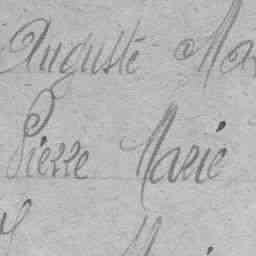 Auguste Ma
Pierre Marie